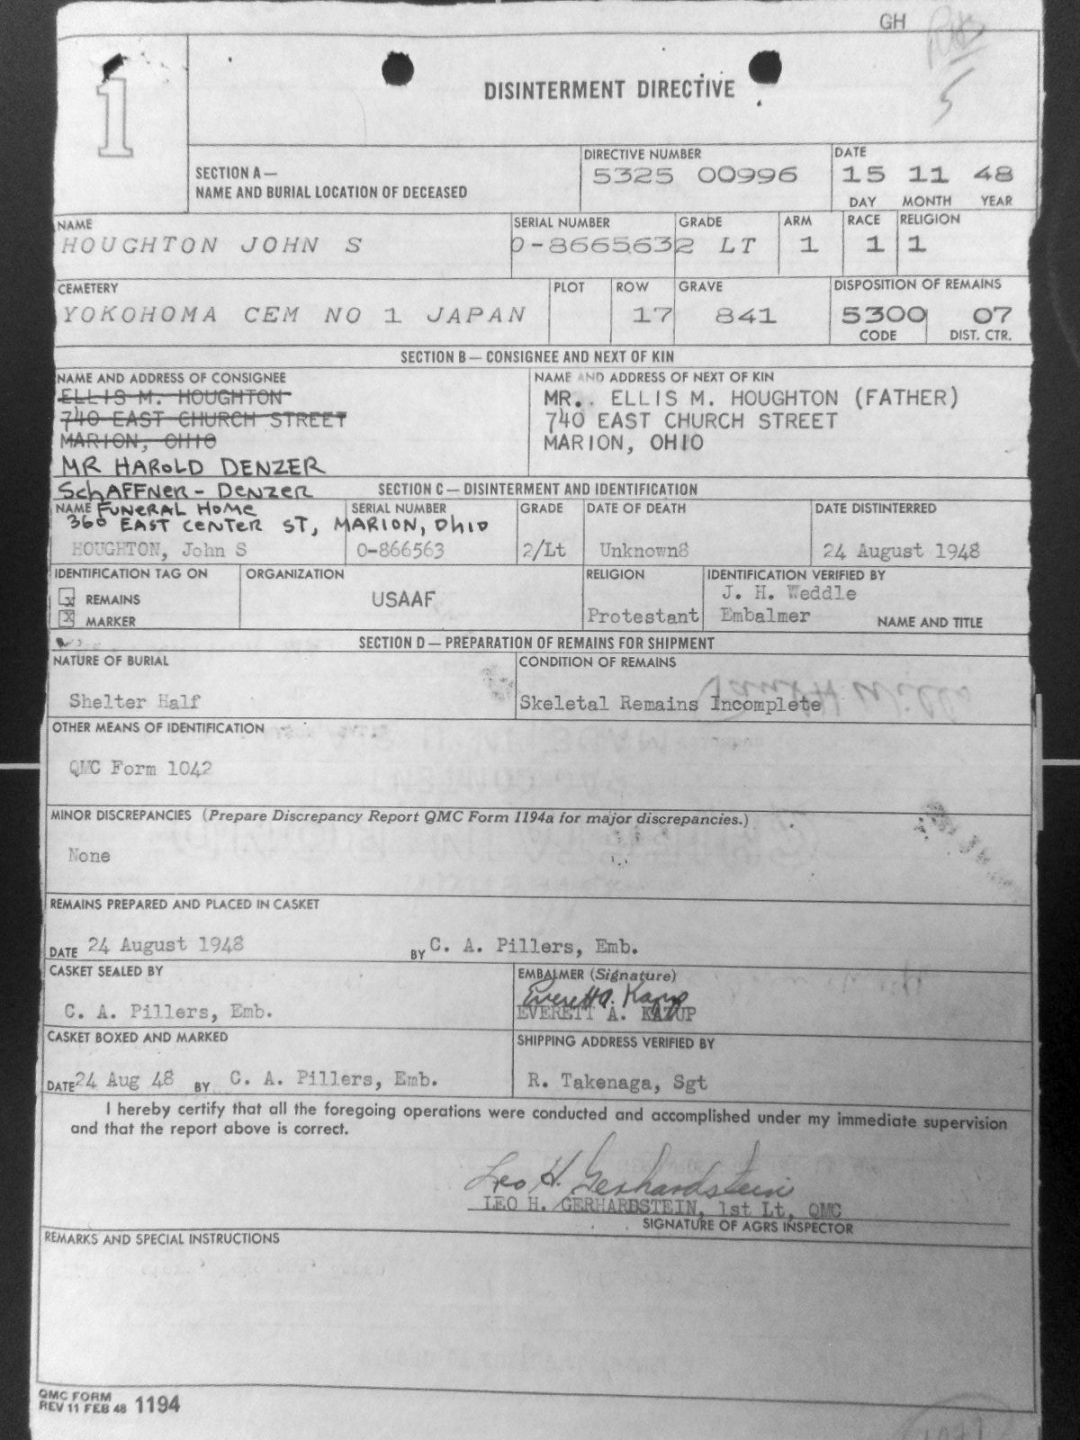 GH
1
DISINTERMENT DIRECTIVE
SECTION A—
NAME AND BURIAL LOCATION OF DECEASED
DIRECTIVE NUMBER
5325 00996
DATE
15 11 48
DAY MONTH YEAR
NAME
HOUGHTON JOHN S
SERIAL NUMBER
O-866563
GRADE
2 LT
ARM
1
RACE
1
RELIGION
1
CEMETERY
YOKOHOMA CEM NO 1 JAPAN
PLOT
ROW
17
GRAVE
841
DISPOSITION OF REMAINS
5300 07
CODE DIST. CTR.
SECTION B — CONSIGNEE AND NEXT OF KIN
NAME AND ADDRESS OF CONSIGNEE
ELLIS M. HOUGHTON
740 EAST CHURCH STREET
MARION, OHIO
MR HAROLD DENZER
SCHAFFNER - DENZER
FUNERAL HOME
360 EAST CENTER ST, MARION, OHIO
NAME AND ADDRESS OF NEXT OF KIN
MR.. ELLIS M. HOUGHTON (FATHER)
740 EAST CHURCH STREET
MARION, OHIO
SECTION C — DISINTERMENT AND IDENTIFICATION
NAME
HOUGHTON, John S
SERIAL NUMBER
O-866563
GRADE
2/Lt
DATE OF DEATH
Unknown8
DATE DISTINTERRED
24 August 1948
IDENTIFICATION TAG ON
x REMAINS
x MARKER
ORGANIZATION
USAAF
RELIGION
Protestant
IDENTIFICATION VERIFIED BY
J. H. Weddle
Embalmer NAME AND TITLE
SECTION D — PREPARATION OF REMAINS FOR SHIPMENT
NATURE OF BURIAL
Shelter Half
CONDITION OF REMAINS
Skeletal Remains Incomplete
OTHER MEANS OF IDENTIFICATION
QMC Form 1042
MINOR DISCREPANCIES (Prepare Discrepancy Report QMC Form 1194a for major discrepancies.)
None
REMAINS PREPARED AND PLACED IN CASKET
DATE 24 August 1948 BY C. A. Pillers, Emb.
CASKET SEALED BY
C. A. Pillers, Emb.
EMBALMER (Signature)
EVERETT A.
CASKET BOXED AND MARKED
DATE 24 Aug 48 BY C. A. Pillers, Emb.
SHIPPING ADDRESS VERIFIED BY
R. Takenaga, Sgt
I hereby certify that all the foregoing operations were conducted and accomplished under my immediate supervision
and that the report above is correct.
Leo H. Gerhardstein
LEO H. GERHARDSTEIN, 1st Lt, QMC
SIGNATURE OF AGRS INSPECTOR
REMARKS AND SPECIAL INSTRUCTIONS
QMC FORM
REV 11 FEB 48 1194